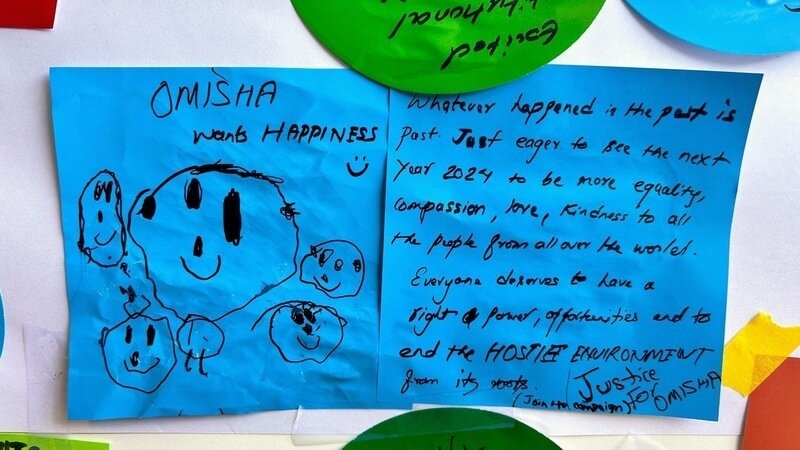 Excited
OMISHA
wants HAPPINESS
Whatever happened in the past is
past. Just eager to see the next
Year 2024 to be more equality,
compassion, love, kindness to all
the people from all over the world.
Everyone deserves to have a
right power, opportunities and to
end the HOSTIE ENVIRONMENT
from its roots.
(Join the campaign)
Justice
FOR
OMISHA